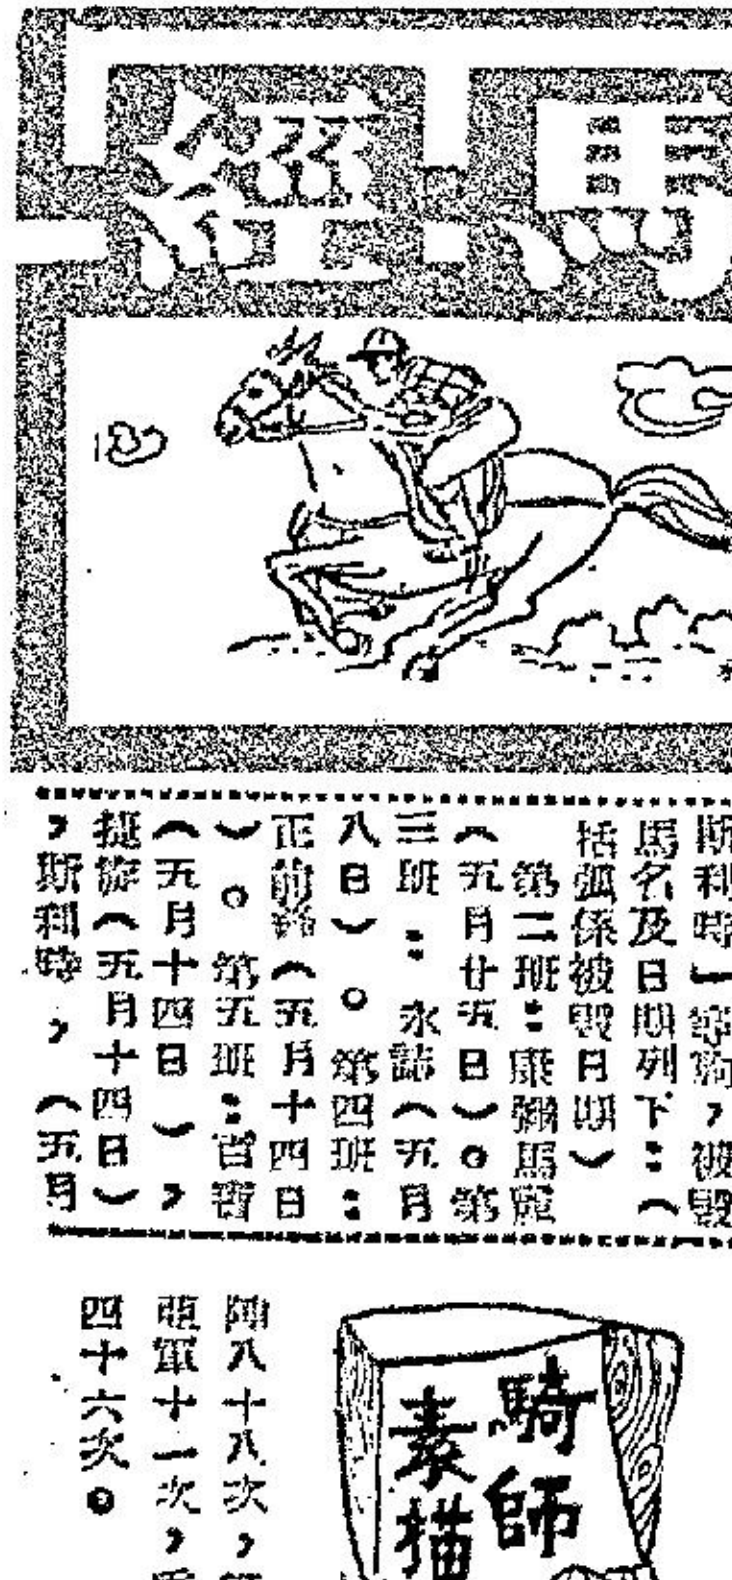 馬經
斯利時」等駒，被毀
馬名及日期列下：（
括弧係被毀日期）
第二班：康彌馬龍
（五月廿五日）。第
三班：永誌（五月
八日）。第四班：
正前鋒（五月十四日
）。第五班：百寶
（五月十四日），
捷旋（五月十四日）
，斯利時，（五月
騎師
素描
陣八十八次，
亞軍十一次，
四十六次。